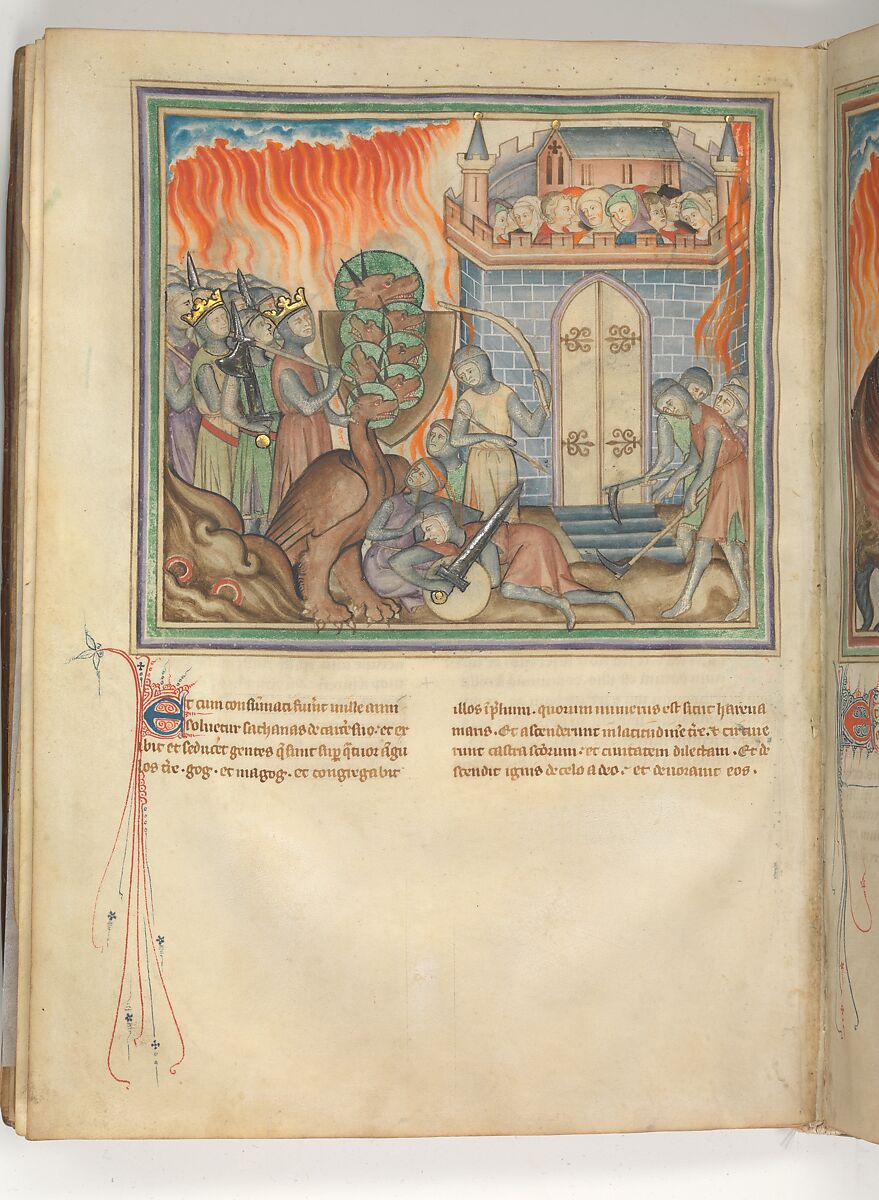 Et cum consumati fuerint mille anni
soluetur sathanas de carcere suo. et ex
ibit et seducet gentes q̄ sunt sup̄ q̄tuor āgu
los tr̄e. gog. et magog. et congregabit
illos ī p̄lium. quorum numerus est sicut harena
maris. Et ascenderunt in latitudinē tr̄e. et circuie
runt castra sc̄orum. et ciuitatem dilectam. Et de
scendit ignis de celo a deo. et deuorauit eos.